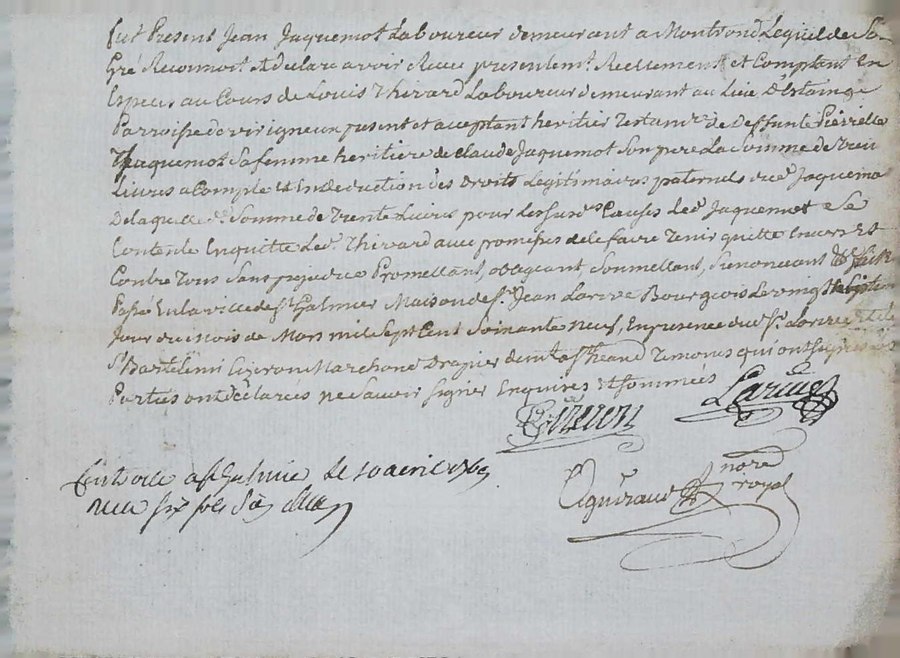 fut Present Jean Jaquemot Laboureur demeurant a Montrond Lequel de So
Gré Reconnoit et declare avoir Receu presentemt Reellement et Comptant En
Especes au Cours de Louis Thevard Laboureur demeurant au Lieu D'Estaing
Parroisse de virigneux present et acceptant heritier Testamre de Deffunte Pierrette
Jaquemot Sa femme heritiere de Claude Jaquemot Son pere La Somme de Tren
Livres a Compte et En deduction des Droits Legitimaires paternels du d. Jaquemo
De laquelle d. Somme de Trente Livres pour Les susd. Causes Led. Jaquemot Se
Contente En quitte Led. Thevard avec promesses de le faire Tenir quitte Envers et
Contre Tous Sans prejudice Promettant, obligeant, Soumettant, Renonceant
Passé En la ville de St Galmier Maison de Sr. Jean Larive Bourgeois Le vingt
Jour du mois de Mars mil Sept Cent Soixante neuf, En presence dud. Sr. Larive et de
Sr Bartelemi Marchand Drapier demt a St heand Temoins qui ont
Parties ont declarées ne Savoir Signer Enquises et Sommées
Larive
nore
royal
Controlé a St Galmier le 10 avril 1769
reçu six sols